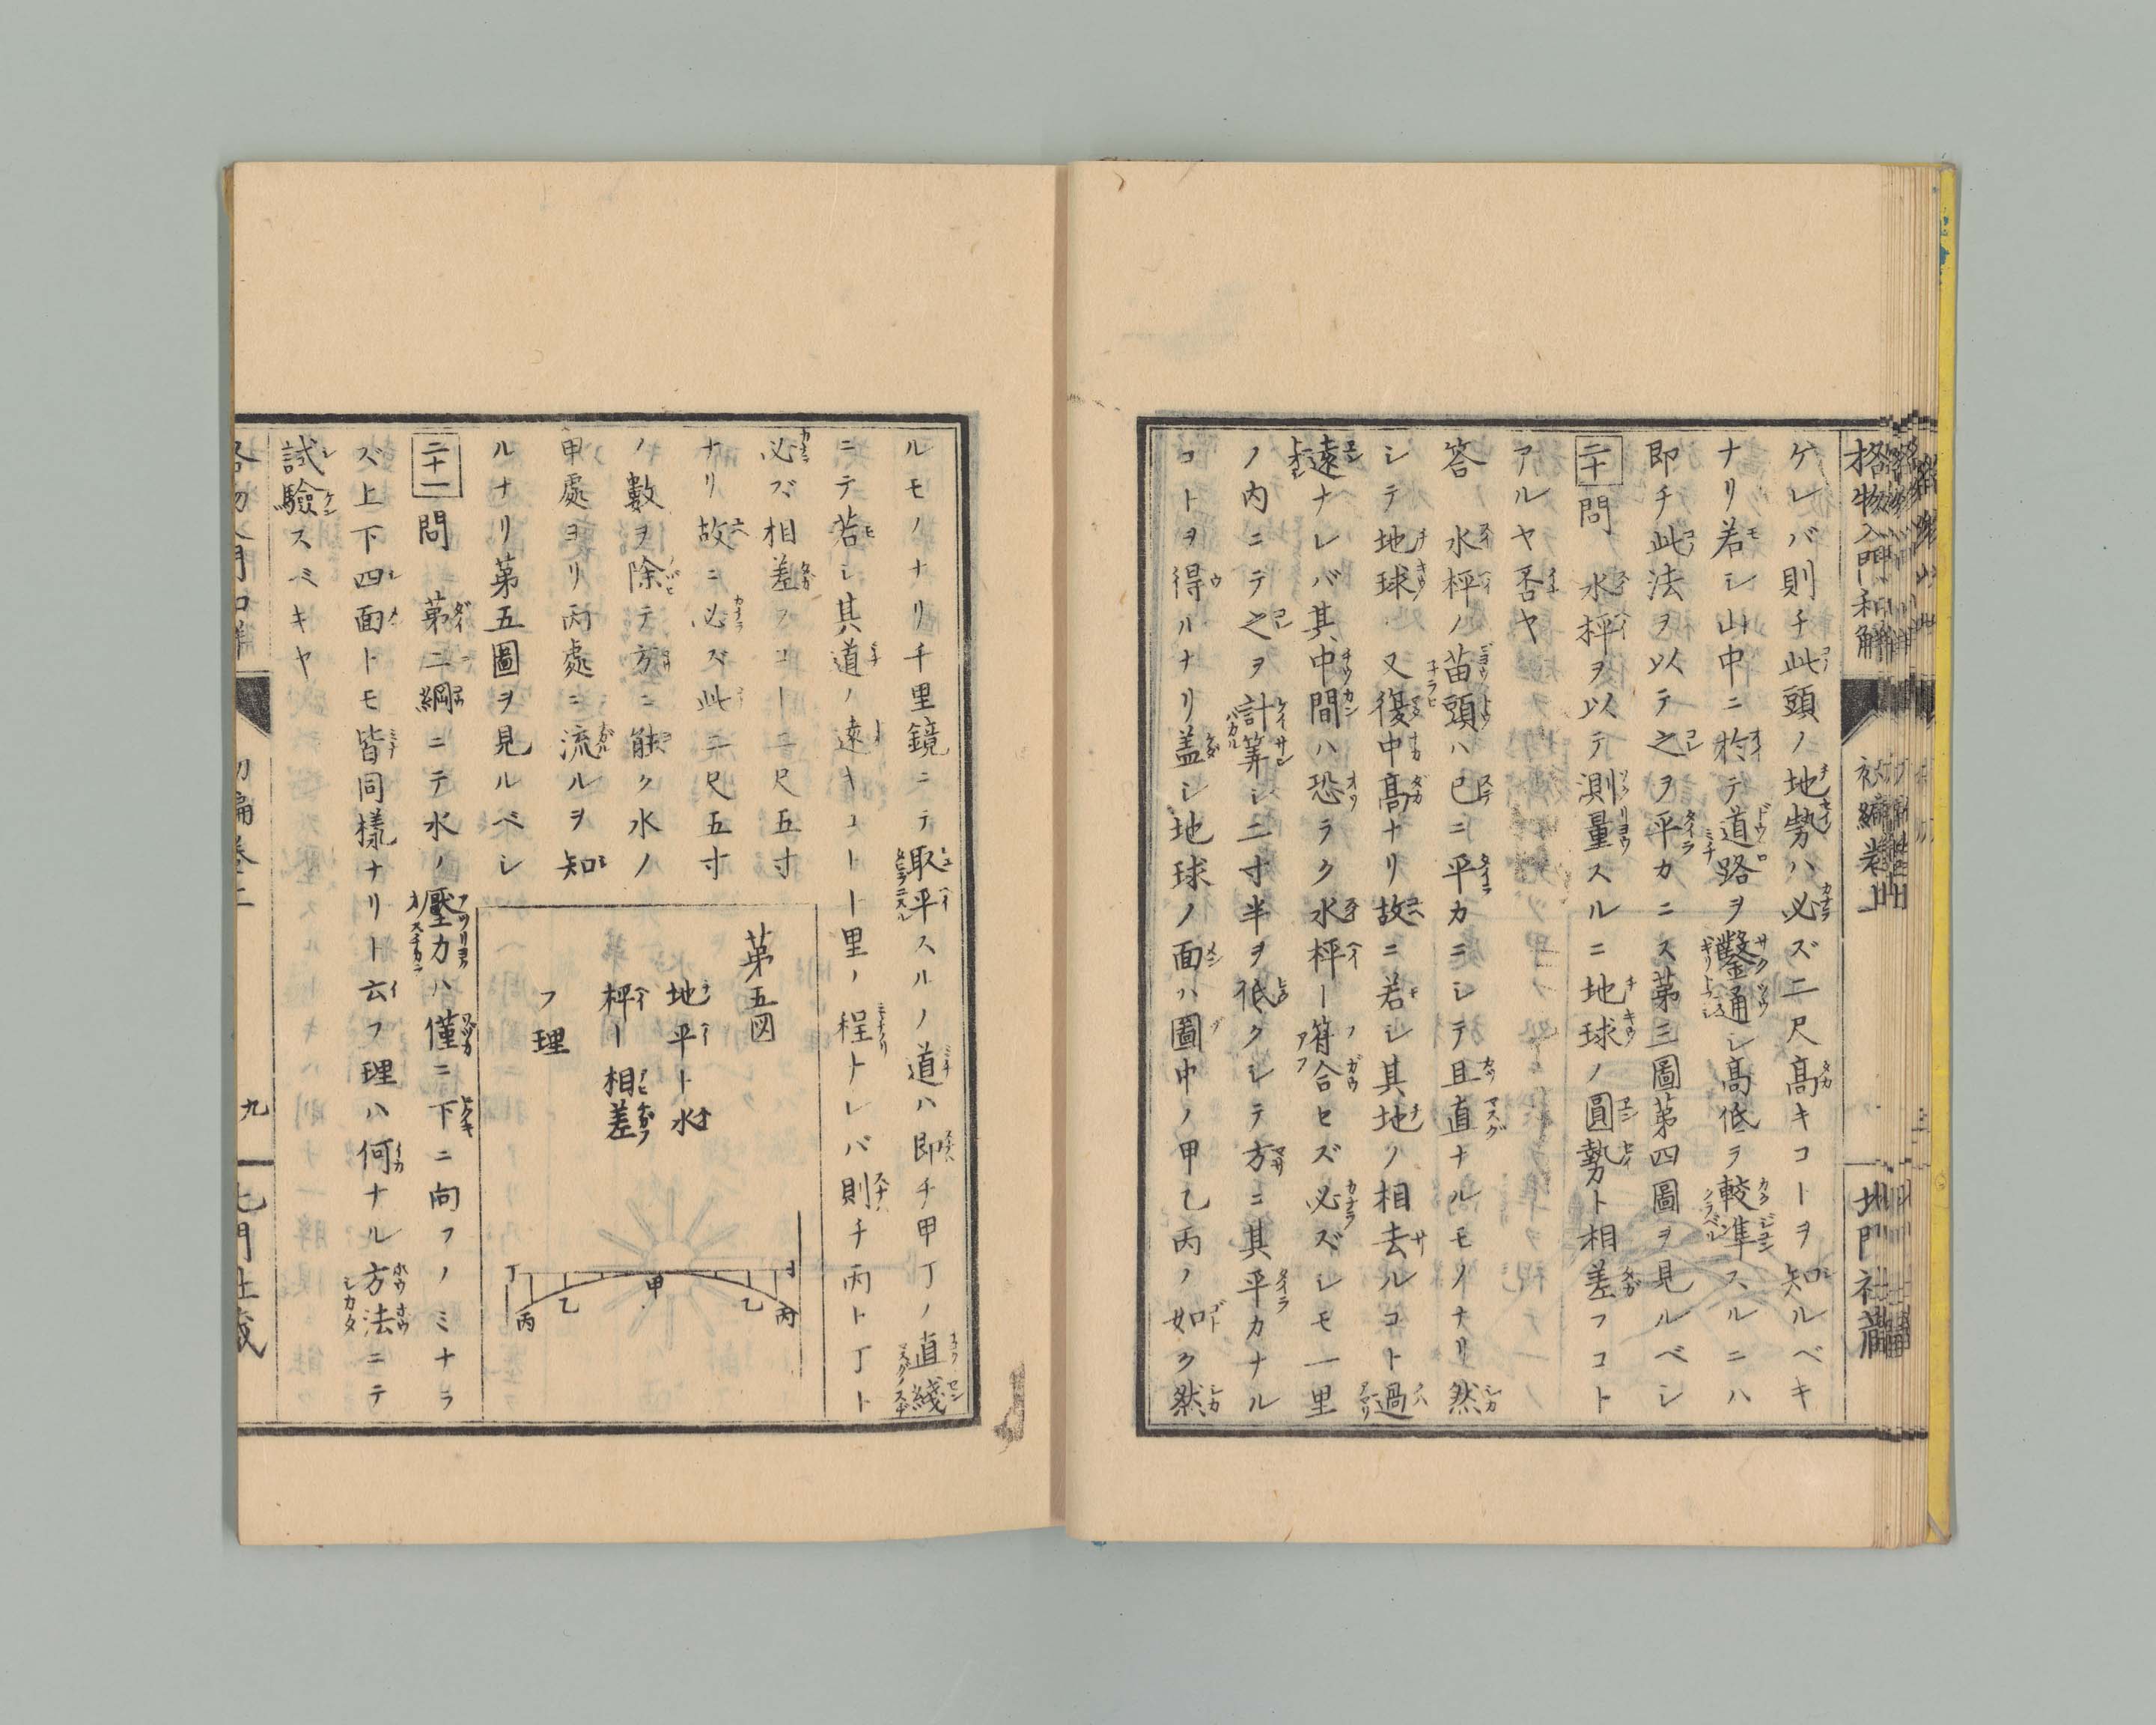 格物入門和解
初編巻一
北門社蔵
ケレバ則チ此頭ノ地勢ハ必ズ二尺髙キコーヲ知ルベキ
ナリ若シ山中ニ於テ道路ヲ鑿通シ髙低ヲ較準スルニハ
即チ此法ヲ以テ之ヲ平カニス第三圖第四圖ヲ見ルベシ
二十問 水枰ヲ以テ測量スルニ地球ノ圓勢ト相差フコト
アルヤ否ヤ
答 水枰ノ苗頭ハ已ニ平カニシテ且直ナルモノナリ然
シテ地球ハ又復中髙ナリ故ニ若シ其地ノ相去ルコト過
遠ナレバ其中間ハ恐ラク水枰ー符合セズ必ズシモ一里
ノ内ニテ之ヲ計筭シ二寸半ヲ低クシテ方ニ其平カナル
コトヲ得ルナリ盖シ地球ノ面ハ圖中ノ甲乙丙ノ如ク然
ルモノナリ千里鏡ニテ取平スルノ道ハ即チ甲丁ノ直綫
ニテ若シ其道ノ遠キコトー里ノ程トレバ則チ丙ト丁ト
必ズ相差フコー二尺五寸
ナリ故ニ必ズ此二尺五寸
ノ數ヲ除テ方ニ能ク水ノ
甲處ヨリ丙處ニ流ルヲ知
ルナリ第五圖ヲ見ルベシ
第五図
地平ト水
枰ー相差
フ理
丁
丙
乙
甲
乙
丙
丁
二十一問 第二綱ニテ水ノ壓力ハ僅ニ下ニ向フノミナラ
ズ上下四面トモ皆同樣ナリト云フ理ハ何ナル方法ニテ
試驗スミキヤ
格物入門和解
初編巻一
九
北門社蔵